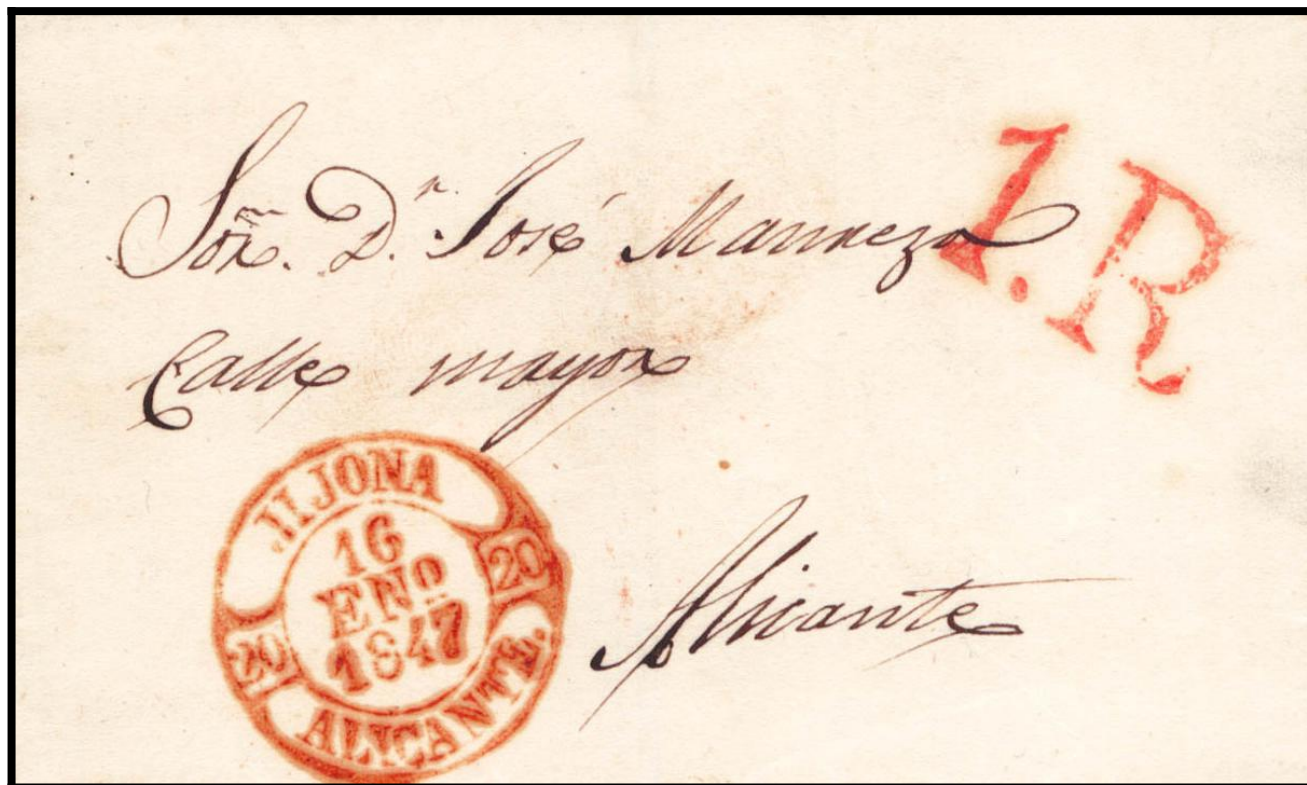 1.R
Sor. Dn. José
Calle mayor
JIJONA
16
ENO
1847
20
20
ALICANTE.
Alicante